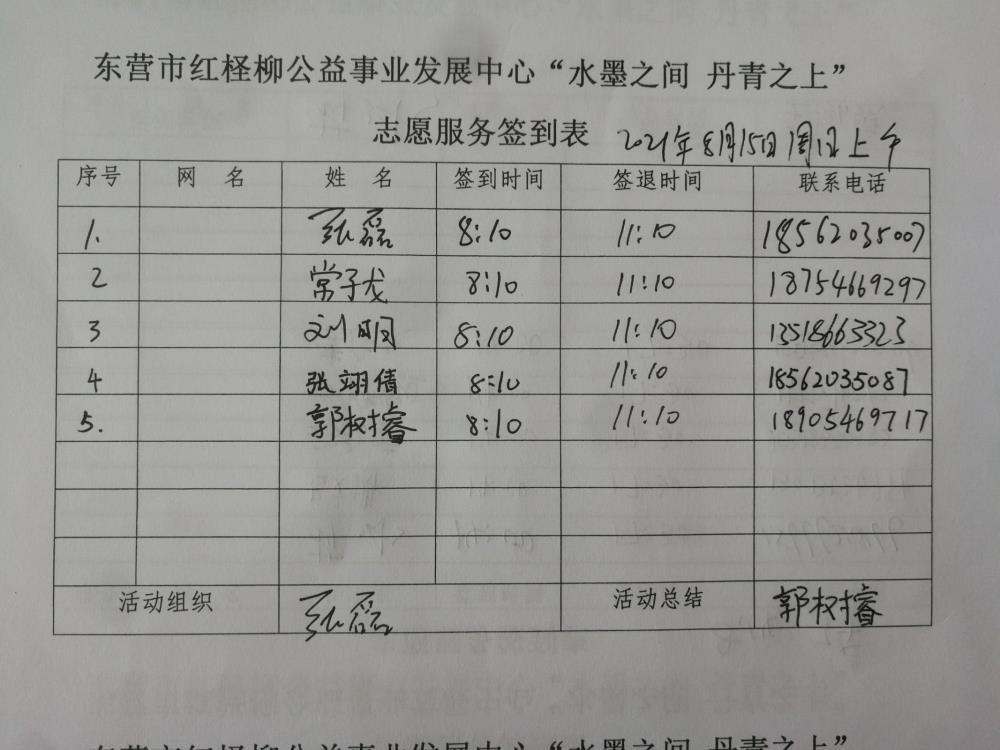 东营市红柽柳公益事业发展中心“水墨之间 丹青之上”
志愿服务签到表 2021年8月15日周日上午
序号 网 名 姓 名 签到时间 签退时间 联系电话
1. 张磊 8:10 11:10 18562035007
2 常子龙 8:10 11:10 18754669297
3 刘明 8:10 11:10 13518663323
4 张翊倩 8:10 11:10 18562035087
5. 郭树睿 8:10 11:10 18905469717
活动组织 张磊 活动总结 郭树睿
东营市红柽柳公益事业发展中心“水墨之间 丹青之上”